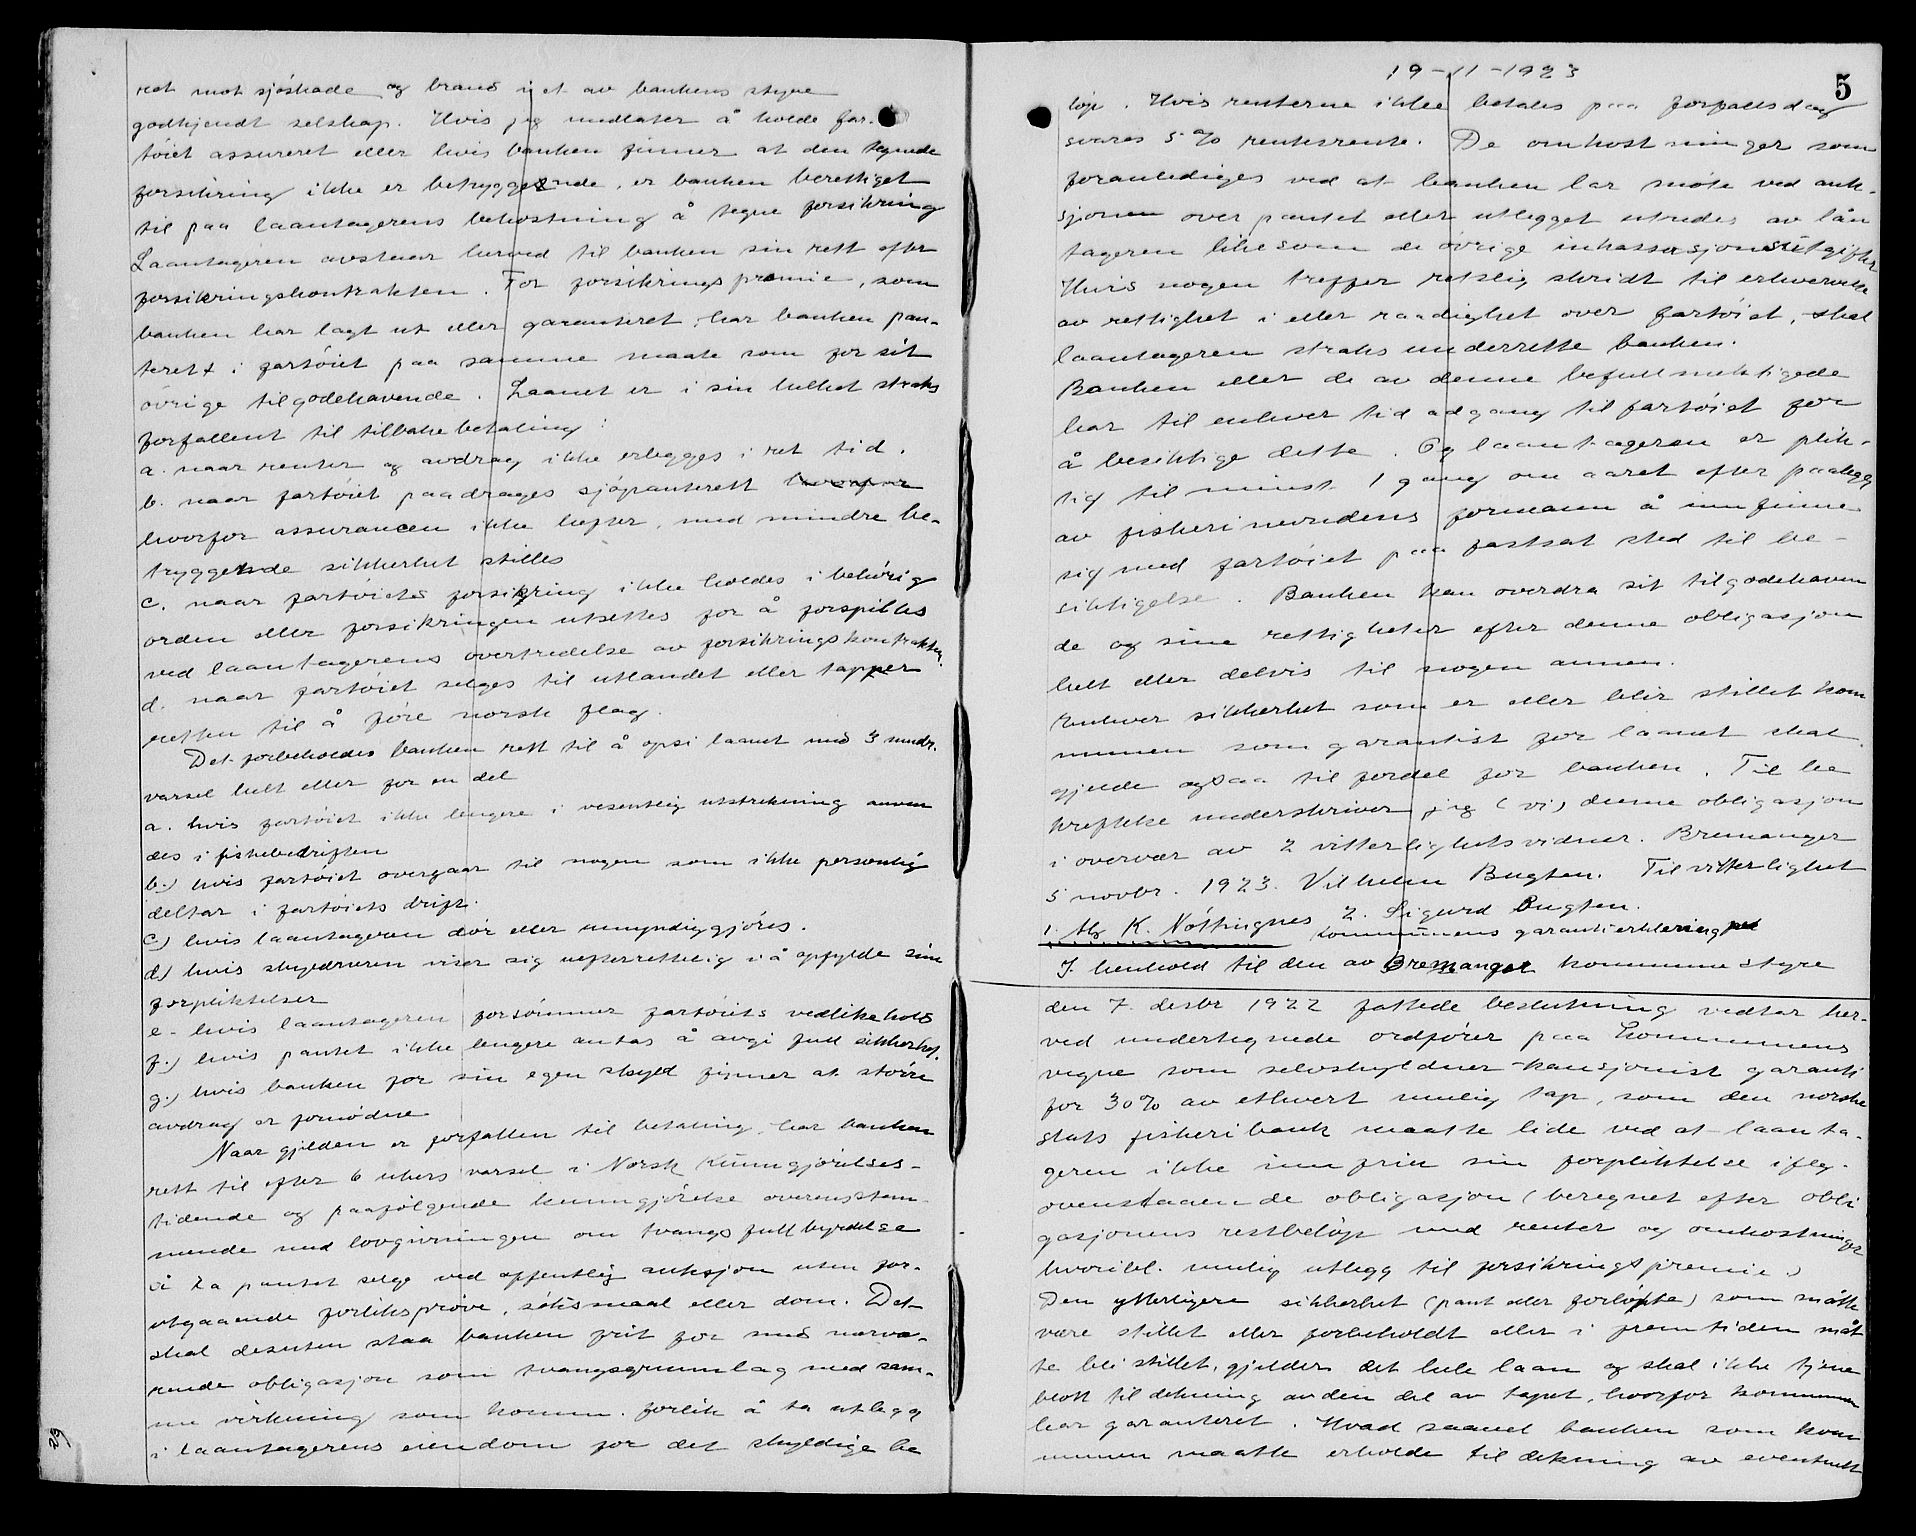 ret mot sjøskade og brand i et av bankens styre
godkjendt selskap. Hvis jeg undlater å holde far-
tøiet assureret eller hvis banken finner at den tegnede
forsikring ikke er betryggende, er banken berettiget
til paa laantagerens bekostning å tegne forsikring
Laantageren avstaar herved til banken sin rett efter
forsikringskontrakten. For forsikringspremie, som
banken har lagt ut eller garanteret, har banken pan-
terett i fartøiet paa samme maate som for sit
øvrige tilgodehavende. Laanet er i sin helhet straks
forfallent til tilbakebetaling:
a. naar renter og avdrag ikke erlegges i ret tid.
b. naar fartøiet paadrages sjøpanterett
hvorfor assurancen ikke hefter, med mindre be-
tryggende sikkerhet stilles
c. naar fartøiets forsikring ikke holdes i behørig
orden eller forsikringen utsettes for å forspilles
ved laantagerens overtredelse av forsikringskontrakten.
d. naar fartøiet selges til utlandet eller tapper
retten til å føre norsk flag.
Det forbeholdes banken rett til å opsi laanet med 3 mndr.
varsel helt eller for en del
a. hvis fartøiet ikke lengere i vesentlig utstrekning anven
des i fiskebedriften
b.) hvis fartøiet overgaar til nogen som ikke personlig
deltar i fartøiets drift.
c) hvis laantageren dør eller umyndiggjøres.
d) hvis skyldneren viser sig uefterrettelig i å opfylde sine
forpliktelser
e. hvis laantageren forsømmer fartøiets vedlikehold
f.) hvis pantet ikke lengere antas å avgi full sikkerhet.
g.) hvis banken for sin egen skyld finner at større
avdrag er fornødne
Naar gjelden er forfallen til betaling, har banken
rett til efter 6 ukers varsel i Norsk Kunngjørelses-
tidende og paafølgende kunngjørelse overensstem
mende med lovgivningen om tvangsfullbyrdelse
å la pantet selge ved offentlig auksjon uten for-
utgaaende forliksprøve, søksmaal eller dom. Det
skal desuten staa banken frit for med nærvæ-
rende obligasjon som tvangsgrunnlag med sam-
me virkning som komm. forlik å ta utlegg
i laantagerens eiendom for det skyldige be
29
19-11-1923
5
løp. Hvis renterne ikke betales paa forfallsdag
svares 5% rentesrente. De omkostninger som
foranlediges ved at banken lar møte ved auk-
sjonen over pantet eller utlegget utredes av lån
tageren likesom de øvrige inkassasjonsutgifter
Hvis nogen treffer retslig skridt til erhvervelse
av rettighet i eller raadighet over fartøiet, skal
laantageren straks underrette banken.
Banken eller de av denne befullmektigede
har til enhver tid adgang til fartøiet for
å besiktige dette. Og laantageren er plik-
tig til minst 1 gang om aaret efter paalegg
av fiskerinevndens formann å innfinne
sig med fartøiet paa fastsat sted til be-
siktigelse. Banken kan overdra sit tilgodehaven
de og sine rettigheter efter denne obligasjon
helt eller delvis til nogen annen.
Enhver sikkerhet som er eller blir stillet kom
munen som garantist for laanet skal
gjelde ogsaa til fordel for banken. Til be
kreftelse underskriver jeg (vi) denne obligasjon
i overvær av 2 vitterlighetsvidner. Bremanger
5 novbr. 1923. Vilhelm Bugten. Til vitterlighet
1. K. Nøttingnes 2. Sigurd Bugten.
Kommunens garantierklering
I henhold til den av Bremanger kommunestyre
den 7. desbr 1922 fattede beslutning vedtar her-
ved undertegnede ordfører paa kommunens
vegne som selvskyldner-kausjonist garanti
for 30% av ethvert mulig tap, som den norske
stats fiskeribank maatte lide ved at laanta-
geren ikke innfrir sin forpliktelse ifølg.
ovenstaaende obligasjon (beregnet efter obli
gasjonens restbeløp med renter og omkostninger
hvoribl. mulig utlegg til forsikringspremie.)
Den ytterligere sikkerhet (pant eller forløfte) som måtte
være stillet eller forbeholdt eller i fremtiden måt
te bli stillet, gjelder det hele laan og skal ikke tjene
blott til dekning av den del av tapet, hvorfor kommunen
har garanteret. Hvad saavel banken som kom
munen maatte erholde til dekning av eventuelt